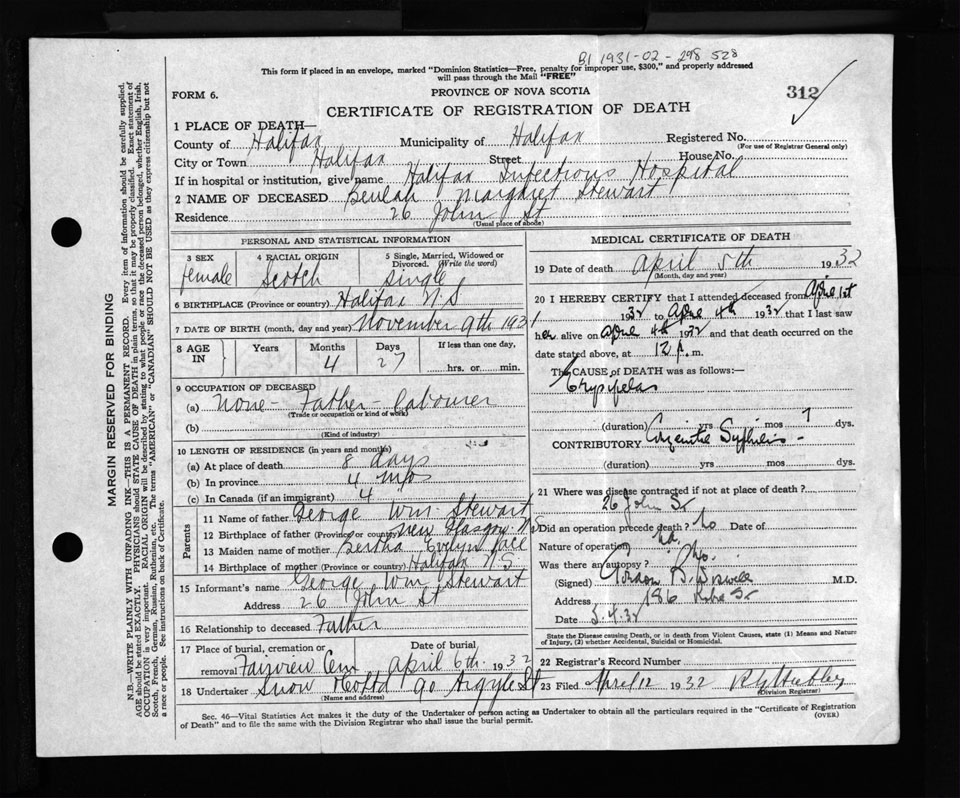 B1 1931-02-298528
This form if placed in an envelope, marked "Dominion Statistics—Free, penalty for improper use, $300," and properly addressed
will pass through the Mail "FREE"
FORM 6.
PROVINCE OF NOVA SCOTIA
312
CERTIFICATE OF REGISTRATION OF DEATH
1 PLACE OF DEATH—
County of Halifax Municipality of Halifax Registered No.
(For use of Registrar General only)
City or Town Halifax Street House No.
If in hospital or institution, give name Halifax Infectious Hospital
2 NAME OF DECEASED Beulah Margaret Stewart
Residence 26 John St
(Usual place of abode)
PERSONAL AND STATISTICAL INFORMATION
3 SEX 4 RACIAL ORIGIN 5 Single, Married, Widowed or
Divorced. (Write the word)
female Scotch Single
6 BIRTHPLACE (Province or country) Halifax N.S
7 DATE OF BIRTH (month, day and year) November 9th 1931
8 AGE IN Years Months Days If less than one day,
4 27 hrs. or min.
9 OCCUPATION OF DECEASED
(a) None - Father - labourer
(Trade or occupation or kind of work)
(b)
(Kind of industry)
10 LENGTH OF RESIDENCE (in years and months)
(a) At place of death 8 days
(b) In province 4 mos
(c) In Canada (if an immigrant) 4
Parents
11 Name of father George Wm. Stewart
12 Birthplace of father (Province or country) New Glasgow N.S
13 Maiden name of mother Bertha Evelyn
14 Birthplace of mother (Province or country) Halifax N S
15 Informant's name George Wm Stewart
Address 26 John St
16 Relationship to deceased Father
17 Place of burial, cremation or Date of burial
removal Fairview Cem April 6th 1932
18 Undertaker Snow 90 Argyle St
(Name and address)
MEDICAL CERTIFICATE OF DEATH
19 Date of death April 5th 1932
(Month, day and year)
20 I HEREBY CERTIFY that I attended deceased from April 1st
1932 to April 4th 1932 that I last saw
her alive on April 4th 1932 and that death occurred on
the date stated above, at 12 m.
The CAUSE of DEATH was as follows:—
Erysipelas
(duration) yrs mos 7 dys.
CONTRIBUTORY Syphilis -
(duration) yrs mos dys.
21 Where was disease contracted if not at place of death?
26 John St
Did an operation precede death? No Date of
Nature of operation
Was there an autopsy? No.
(Signed) Gordon B. Wiswell M.D.
Address 186
Date 5.4.32
State the Disease causing Death, or in death from Violent Causes, state (1) Means and Nature
of Injury, (2) whether Accidental, Suicidal or Homicidal.
22 Registrar's Record Number
23 Filed April 12 1932
(Division Registrar)
Sec. 46—Vital Statistics Act makes it the duty of the Undertaker or person acting as Undertaker to obtain all the particulars required in the "Certificate of Registration
of Death" and to file the same with the Division Registrar who shall issue the burial permit.
(OVER)
MARGIN RESERVED FOR BINDING
N.B.—WRITE PLAINLY WITH UNFADING INK—THIS IS A PERMANENT RECORD. Every item of information should be carefully supplied.
AGE should be stated EXACTLY. PHYSICIANS should STATE CAUSE OF DEATH in plain terms, so that it may be properly classified. Exact statement of
OCCUPATION is very important. RACIAL ORIGIN will be described by stating to what people or race the deceased person belonged, whether English, Irish,
Scotch, French, German, Russian, Ruthenian, etc. The terms "AMERICAN" or "CANADIAN" SHOULD NOT BE USED as they express citizenship but not
a race or people. See instructions on back of Certificate.